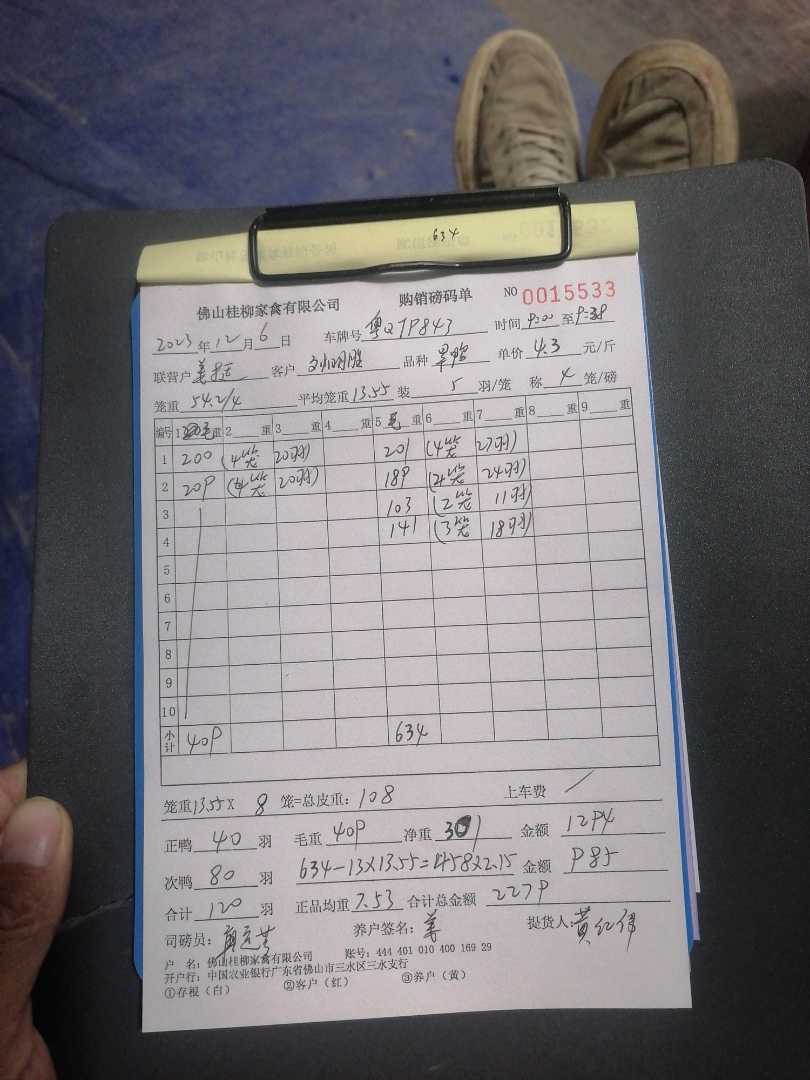 634
佛山桂柳家禽有限公司 购销磅码单 NO 0015533
2023年12月6日 车牌号 粤Q7P843 时间 9:00 至 9:38
联营户 客户 品种 单价 4.3 元/斤
笼重 54.2/4 平均笼重 13.55 装 5 羽/笼 称 4 笼/磅
编号 1 毛 重 2 重 3 重 4 重 5 毛 重 6 重 7 重 8 重 9 重
1 200 (4笼 20羽) 201 (4笼 27羽)
2 209 (4笼 20羽) 189 (4笼 24羽)
3 103 (2笼 11羽)
4 141 (3笼 18羽)
5
6
7
8
9
10
小计 409 634
笼重 13.55 X 8 笼=总皮重: 108 上车费
正鸭 40 羽 毛重 409 净重 301 金额 1294
次鸭 80 羽 634-13×13.55=458×2.15 金额 985
合计 120 羽 正品均重 7.53 合计总金额 2279
司磅员: 养户签名: 姜 提货人: 黄红伟
户 名: 佛山桂柳家禽有限公司 账号: 444 401 010 400 169 29
开户行: 中国农业银行广东省佛山市三水区三水支行
①存根（白） ②客户（红） ③养户（黄）